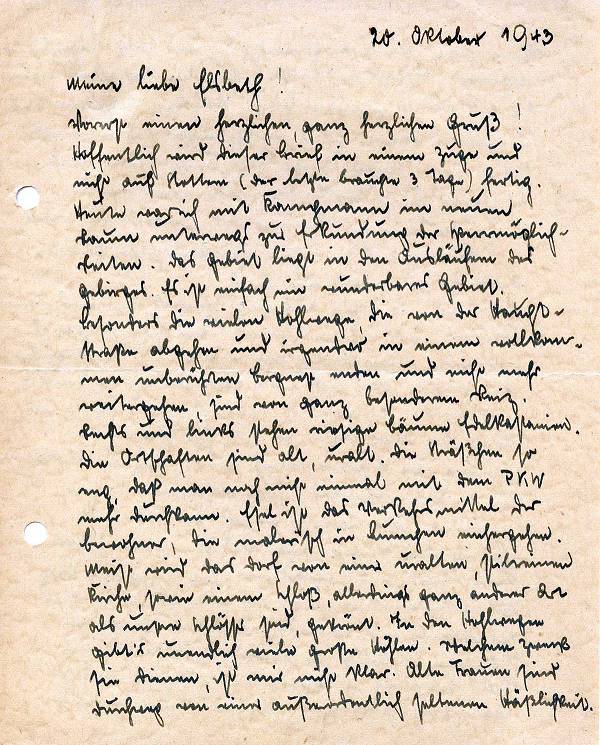 20. Oktober 1943
Meine liebe Elsbeth!
Vorerst einen herzlichen, ganz herzlichen Gruß!
Hoffentlich wird dieser Brief in einem Zuge und
nicht auf Etappen (der letzte brauchte 3 Tage) fertig.
Heute war ich mit im neuen
Raum unterwegs zur Erkundung der Sperrmöglich-
keiten. Das Gebiet liegt in den Ausläufern des
Gebirges. Es ist einfach ein wunderbares Gebiet.
Besonders die vielen Hohlwege, die von der Haupt-
straße abgehen und irgendwo in einem vollkom-
men unberührten Bergnest enden und nicht mehr
weitergehen, sind von ganz besonderem Reiz.
Rechts und links stehen riesige Bäume Edelkastanien.
Die Ortschaften sind alt, uralt. Die Sträßchen so
eng, daß man noch nicht einmal mit dem PKW
mehr durchkann. Esel ist das Verkehrsmittel der
Bewohner, die malerisch in Lumpen einhergehen.
Meist wird das Dorf von einer uralten,
Kirche, sowie einem Schloß, allerdings ganz anderer Art
als unsere Schlösser sind, gekrönt. In den Hohlwegen
gibt's unendlich viele große Höhlen. Welchem Zweck
sie dienen, ist mir nicht klar. Alte Frauen sind
durchweg von einer außerordentlich seltenen Häßlichkeit.